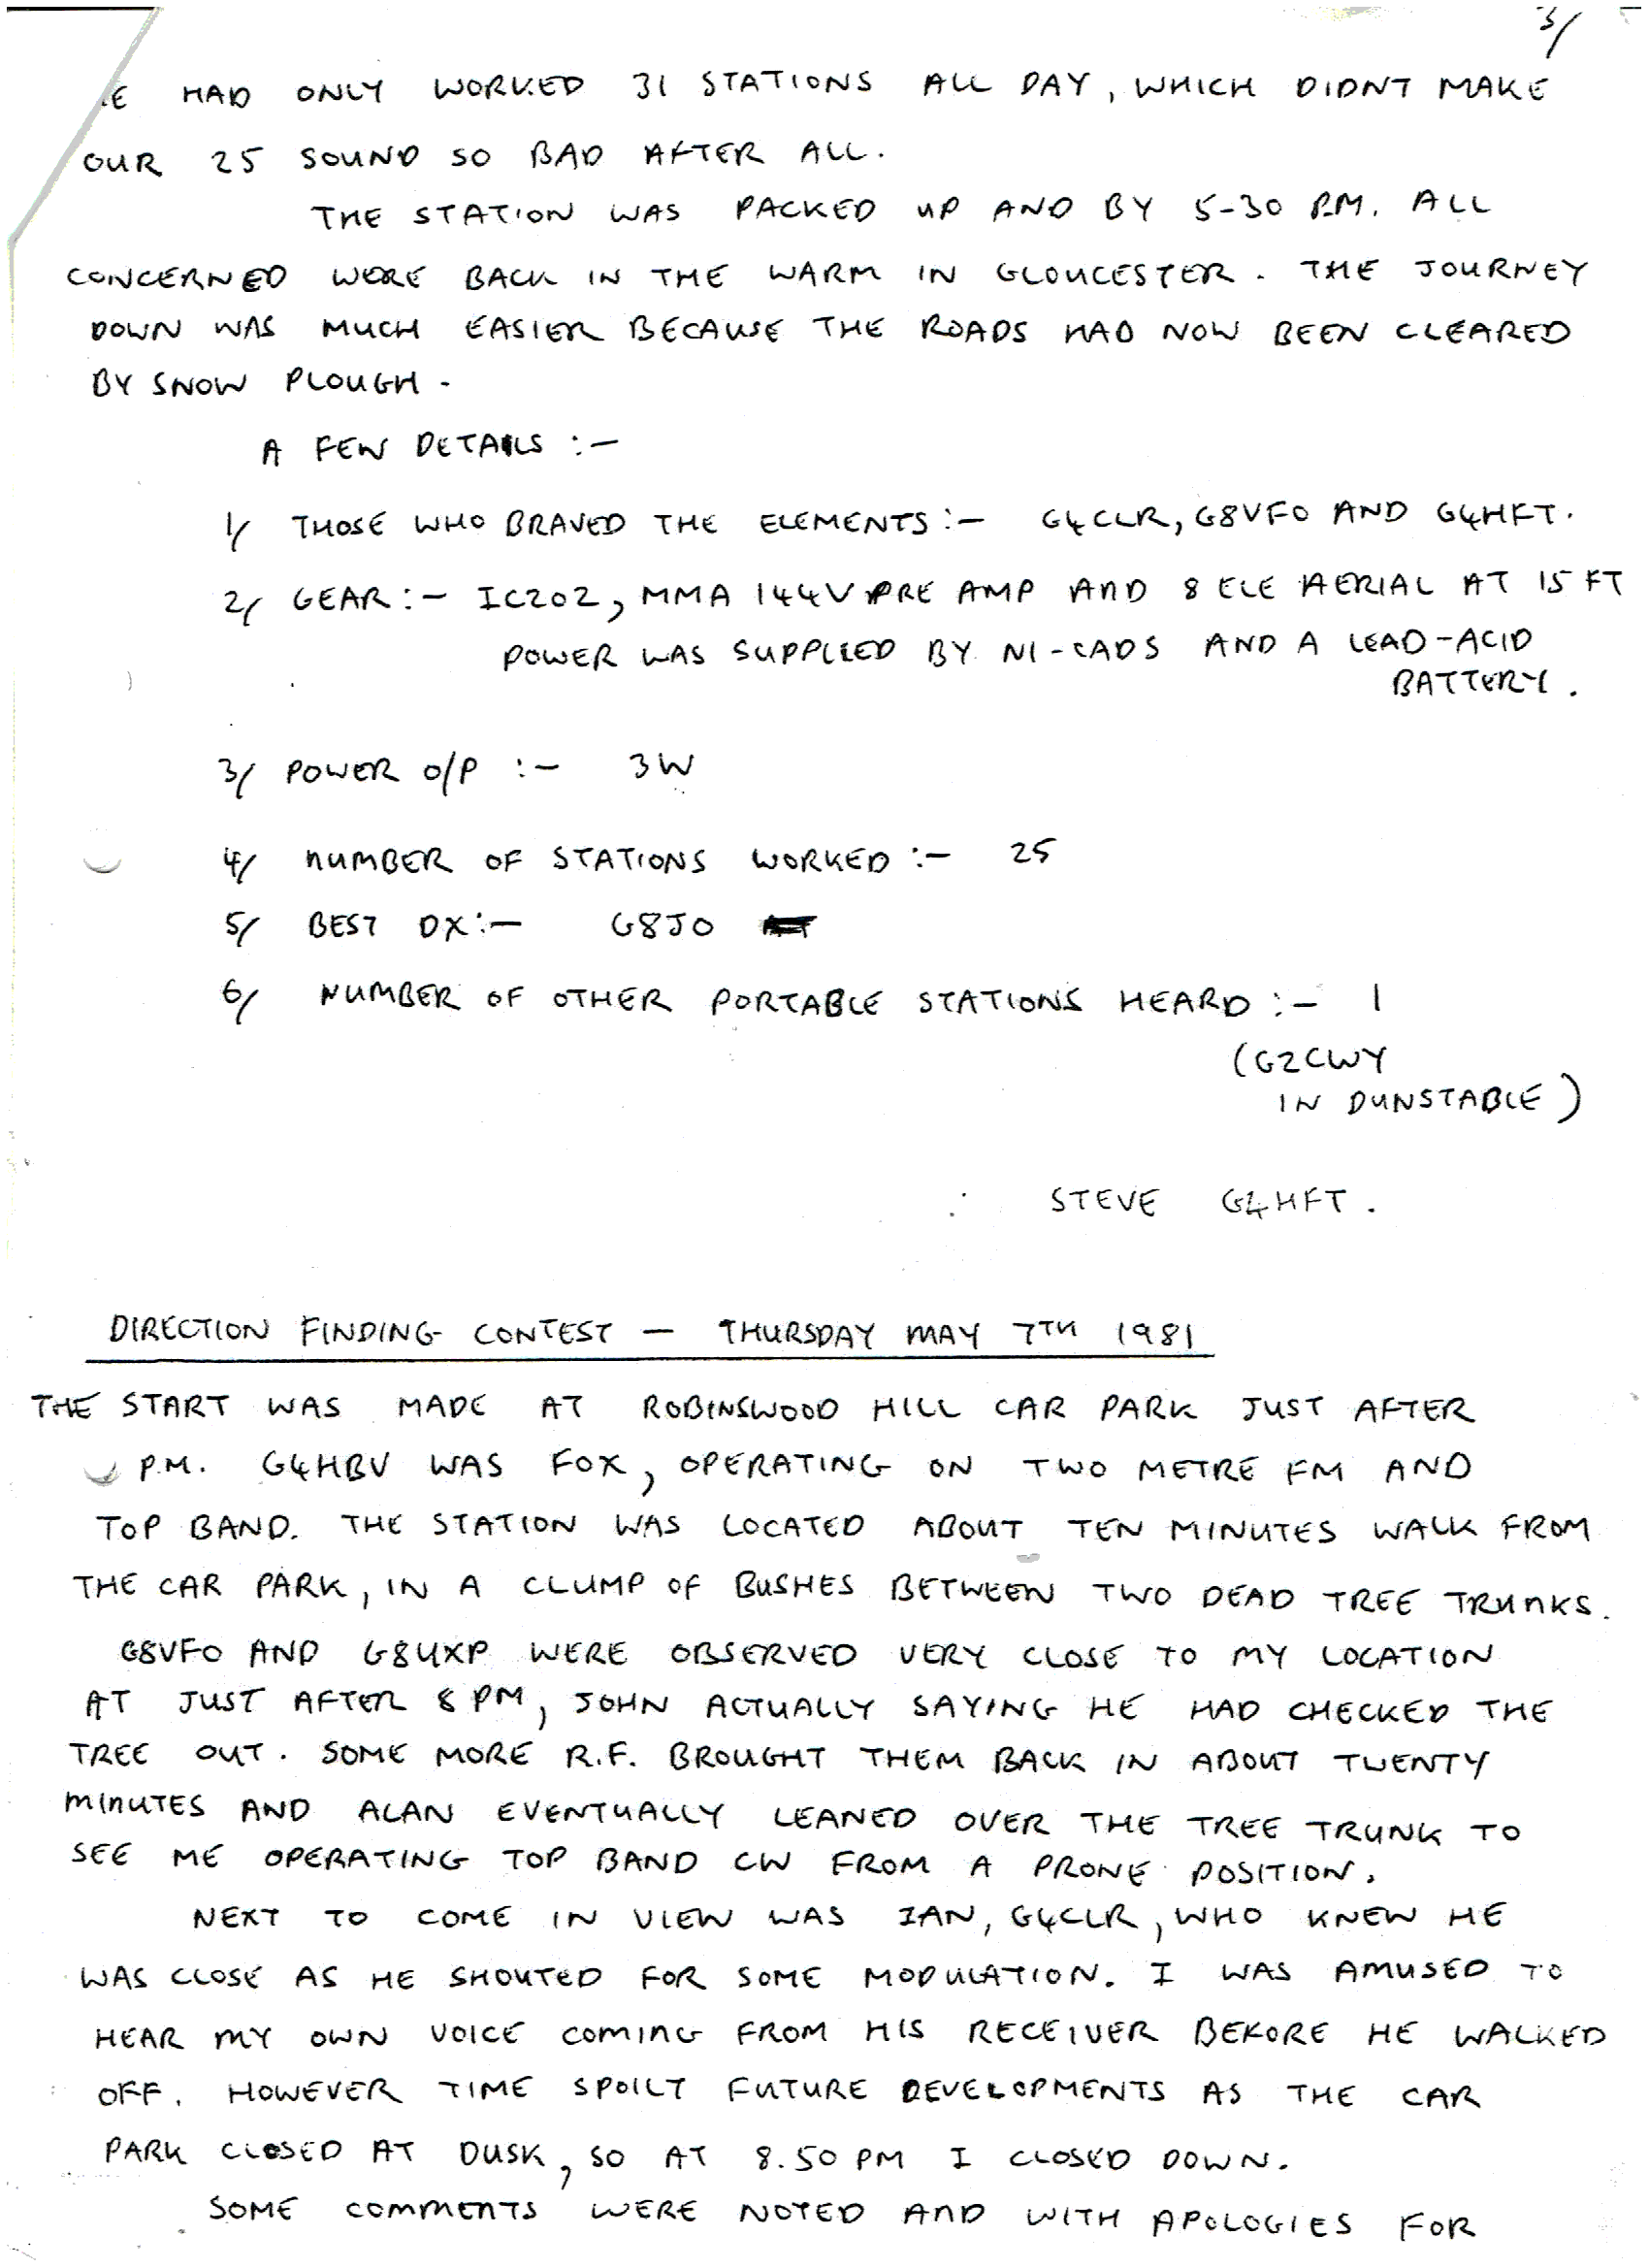 3/
E HAD ONLY WORKED 31 STATIONS ALL DAY, WHICH DIDNT MAKE
OUR 25 SOUND SO BAD AFTER ALL.
THE STATION WAS PACKED UP AND BY 5-30 P.M. ALL
CONCERNED WERE BACK IN THE WARM IN GLOUCESTER. THE JOURNEY
DOWN WAS MUCH EASIER BECAUSE THE ROADS HAD NOW BEEN CLEARED
BY SNOW PLOUGH.
A FEW DETAILS :-
1/ THOSE WHO BRAVED THE ELEMENTS:- G4CLR, G8VFO AND G4HFT.
2/ GEAR:- IC202, MMA 144V PRE AMP AND 8 ELE AERIAL AT 15 FT
POWER WAS SUPPLIED BY NI-CADS AND A LEAD-ACID
BATTERY.
3/ POWER O/P :- 3W
4/ NUMBER OF STATIONS WORKED:- 25
5/ BEST DX:- G8JO
6/ NUMBER OF OTHER PORTABLE STATIONS HEARD:- 1
(G2CWY
IN DUNSTABLE)
STEVE G4HFT.
DIRECTION FINDING CONTEST - THURSDAY MAY 7TH 1981
THE START WAS MADE AT ROBINSWOOD HILL CAR PARK JUST AFTER
P.M. G4HBV WAS FOX, OPERATING ON TWO METRE FM AND
TOP BAND. THE STATION WAS LOCATED ABOUT TEN MINUTES WALK FROM
THE CAR PARK, IN A CLUMP OF BUSHES BETWEEN TWO DEAD TREE TRUNKS.
G8VFO AND G8UXP WERE OBSERVED VERY CLOSE TO MY LOCATION
AT JUST AFTER 8 PM, JOHN ACTUALLY SAYING HE HAD CHECKED THE
TREE OUT. SOME MORE R.F. BROUGHT THEM BACK IN ABOUT TWENTY
MINUTES AND ALAN EVENTUALLY LEANED OVER THE TREE TRUNK TO
SEE ME OPERATING TOP BAND CW FROM A PRONE POSITION.
NEXT TO COME IN VIEW WAS IAN, G4CLR, WHO KNEW HE
WAS CLOSE AS HE SHOUTED FOR SOME MODULATION. I WAS AMUSED TO
HEAR MY OWN VOICE COMING FROM HIS RECEIVER BEFORE HE WALKED
OFF. HOWEVER TIME SPOILT FUTURE DEVELOPMENTS AS THE CAR
PARK CLOSED AT DUSK, SO AT 8.50 PM I CLOSED DOWN.
SOME COMMENTS WERE NOTED AND WITH APOLOGIES FOR